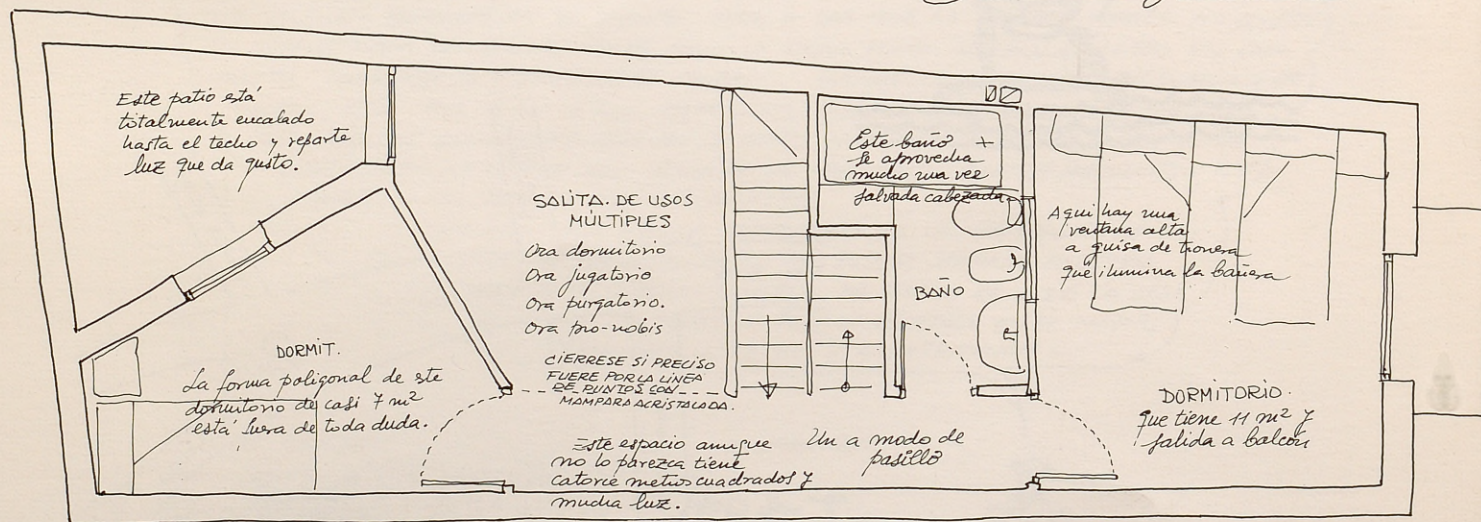 Este patio está
totalmente encalado
hasta el techo y reparte
luz que da gusto.
SALITA. DE USOS
MÚLTIPLES
Ora dormitorio
Ora jugatorio
Ora purgatorio.
Ora pro-nobis
CIERRESE SI PRECISO
FUERE POR LA LINEA
DE PUNTOS CON
MAMPARA ACRISTALADA.
Este baño
se aprovecha
mucho una vez
salvada cabezada.
BAÑO
Aqui hay una
ventana alta
a guisa de tronera
que ilumina la bañera
DORMIT.
La forma poligonal de este
dormitorio de casi 7 m²
está fuera de toda duda.
Este espacio aunque
no lo parezca tiene
catorce metros cuadrados y
mucha luz.
Un a modo de
pasillo
DORMITORIO.
que tiene 11 m² y
salida a balcón